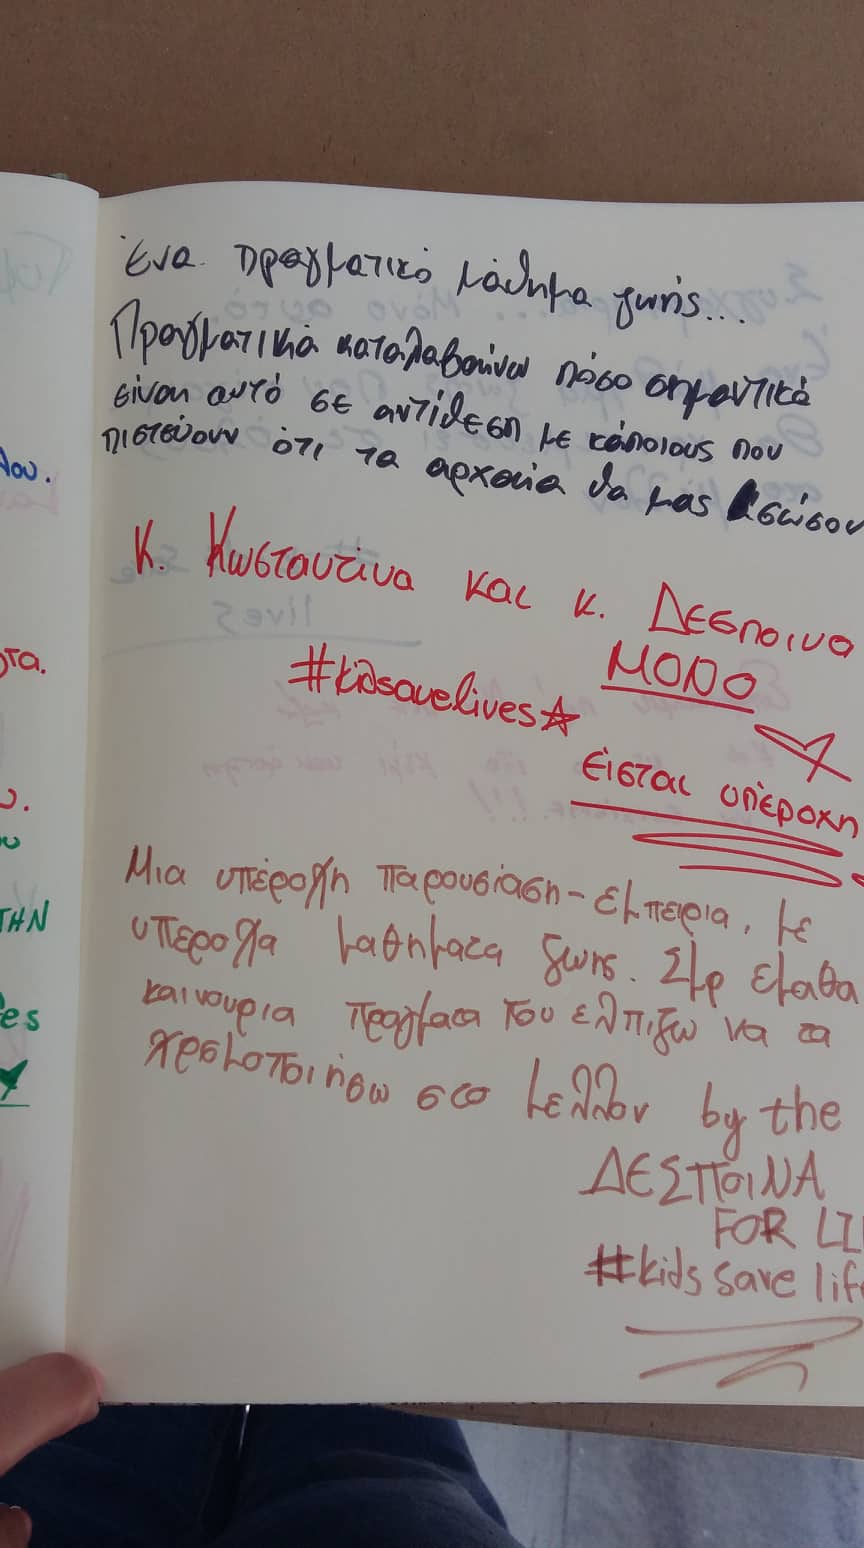 Ένα πραγματικό μάθημα ζωής...
Πραγματικά καταλαβαίνω πόσο σημαντικό
είναι αυτό σε αντίθεση με κάποιους που
πιστεύουν ότι τα αρχαία θα μας σώσουν
Κ. Κωσταντίνα και κ. Δέσποινα
ΜΟΝΟ
#kidsavelives☆
είσται υπέροχη
Μια υπέροχη παρουσίαση-εμπειρια, με
υπεροχα μαθηματα ζωης. Σημρ εμαθα
καινουρια πραγματα που ελπιζω να τα
χρεισιοποιήσω στο μελλον by the
ΔΕΣΠΟΙΝΑ
FOR
#kids save
λου.
ότα.
υ.
ΤΗΝ
es